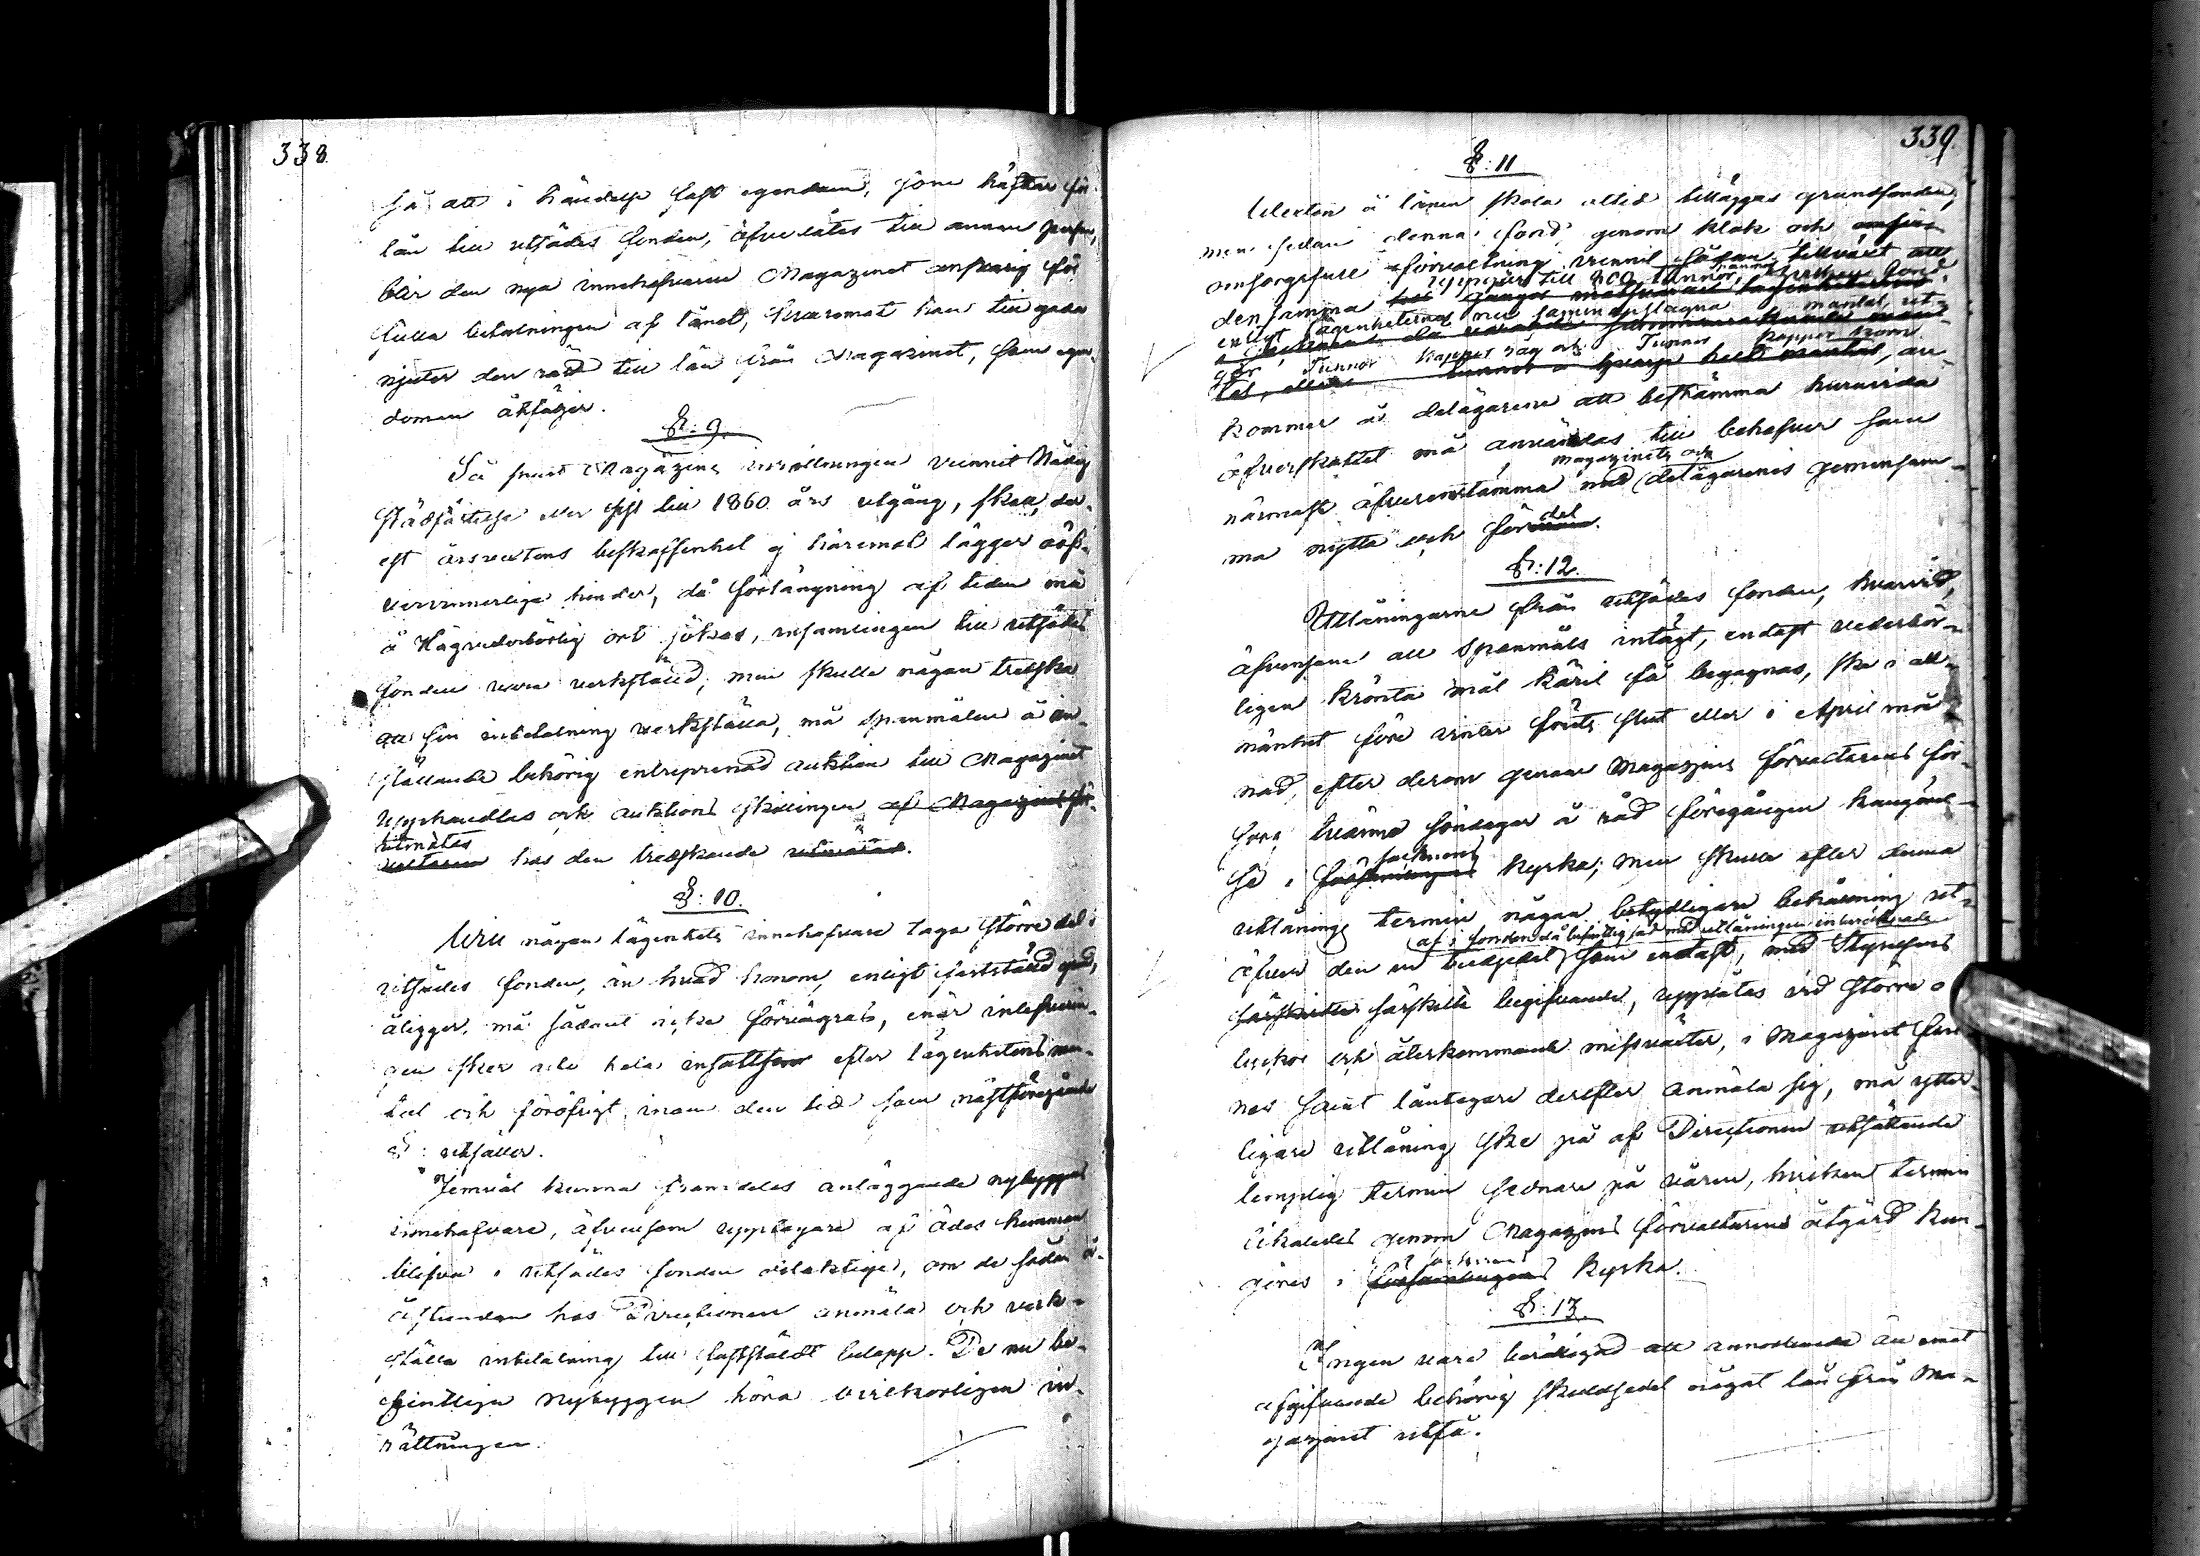 338.
så att i händelse fast egendom, som häftar för
lån till utsädes fonden, öfverlåtes till annan person,
blir den nya innehafvaren Magazinet ansvarig för
fulla betalningen af lånet, hvaremot han till godo
njuter den rätt till lån från Magazinet, som egen-
domen åtföljer.
§: 9.
Så snart Magazins inrättningen vunnit Nådig
stadfästelse eller sist till 1860 års utgång, skall, der-
est årsvextens beskaffenhet ej häremot lägger oöf-
vervinnerliga hinder, då förlängning af tiden må
å Högvederbörlig ort sökas, insamlingen till utsädes
fonden vara verkställd; men skulle någon tredska
att sin inbetalning verkställa, må spanmålen å an-
ställande behörig entreprenad auktion till Magazinet
upphandlas och auktions skillingen af Magazins för-
utmätes
valtaren hos den tredskande utmätas.
§: 10.
Vill någon lägenhets innehafvare taga större del i
utsädes fonden, än hvad honom, enligt fastställd grund,
åligger, må sådant icke förvägras, enär inlefverin-
gen sker efter lägenhetens man-
tal och föröfrigt inom den tid som nästföregående
§: utsätter.
Jemväl kunna framdeles anläggande nybyggens
innehafvare, äfvensom upptagare af ödes hemman
blifva i utsädes fonden delaktige, om de sådan å-
åstundan hos Directionen anmäla och verk-
ställa inbetalning till fastställdt belopp. De nu be-
fintliga Nybyggen höra ovilkorligen in-
rättningen.
339.
§: 11
Vexten å lånen skola alltid tilläggas grundfonden,
men sedan denna fond genom klok och
omsorgsfull förvaltning vunnit sådan tillväxt att
uppgår till 800 tunnor,
densamma
enligt lägenheternas nu sammanslagna mantal, ut-
gör Tunnor kappar råg och Tunnor kappar korn
tal, eller tunnor å hvarje helt mantal, an-
kommer å delägarene att bestämma huruvida
öfverskottet må användas till behofver som
magazinets och
närmast öfverenstämma med delägarenes gemensam-
del
ma nytta och förmån.
§: 12.
Utlåningarne från utsädes fonden, hvarvid,
äfvensom all Spanmåls intägt, endast vederbör-
ligen krönta mål käril få begagnas, ske i all-
mänhet före vinter förets slut eller i April må-
nad, efter derom genom Magazins förvaltarens för-
sorg tvänne söndagar å rad föregången kungörel-
socknens
se i församlingens kyrka; men skulle efter denna
utlånings termin någon betydligare behållning ut-
af i fonden då befintlig säd med utlåningen inberäknade
öfver den en tredjedel som endast, med Styrelsens
särskilta särskilta begifvande, upplåtas vid större o-
lyckor och återkommande missväxter, i Magazinet fin-
nas samt låntagare derefter anmäla sig, må ytter-
ligare utlåning ske på af Directionen utsättande
lämplig termin sednare på våren, hvilken termin
likaledes genom Magazins förvaltarens åtgärd kun-
socknens
göres i församlingens kyrka.
§: 13.
Ingen vare berättigad att annorlunda än emot
afgifvande behörig skuldsedel något lån från Ma-
gazinet utfå.